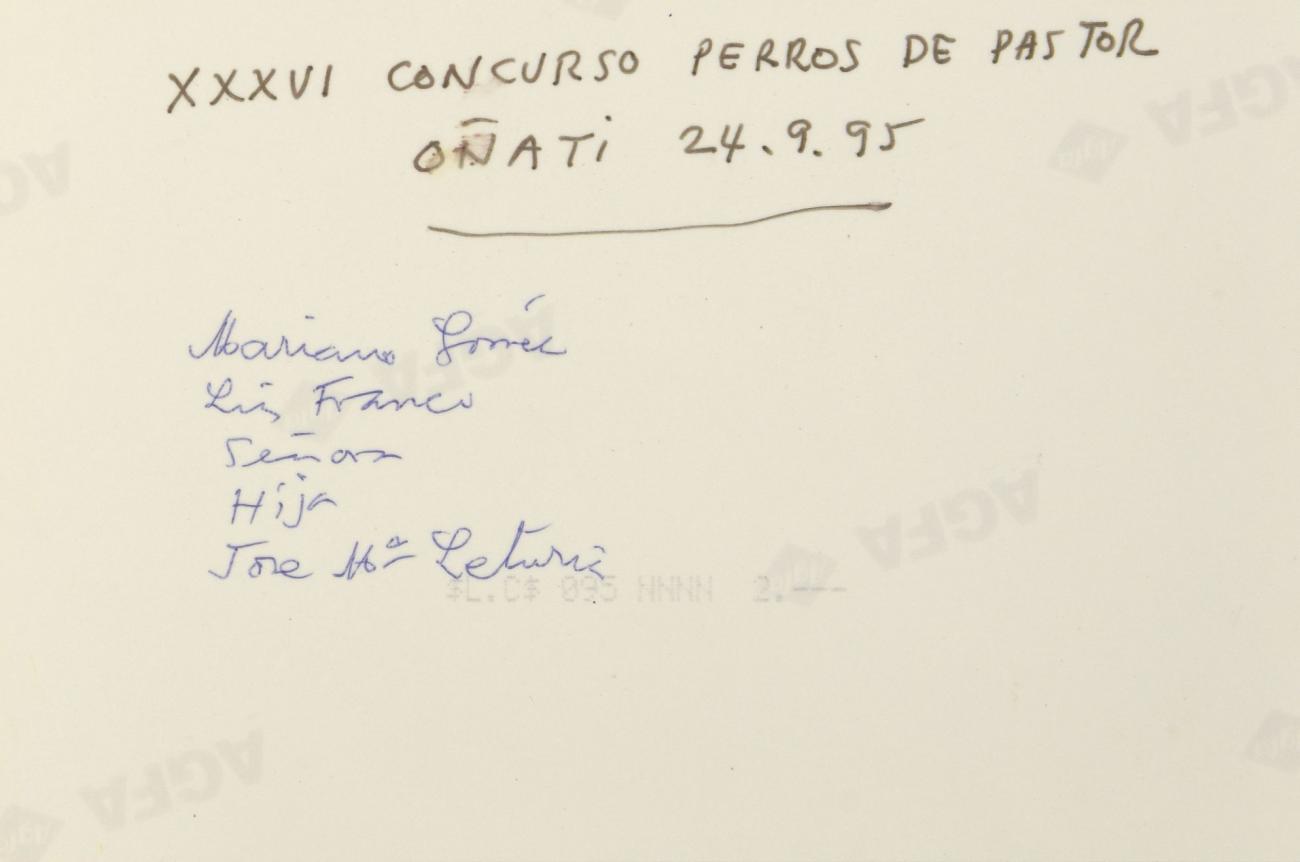 XXXVI CONCURSO PERROS DE PASTOR
OÑATI 24.9.95
Mariano Goméz
Luis Franco
Señora
Hija
Jose Mª Leturia
$L.C$ 095 NNNN 2.---
AGFA
AGFA
AGFA
AGFA
AGFA